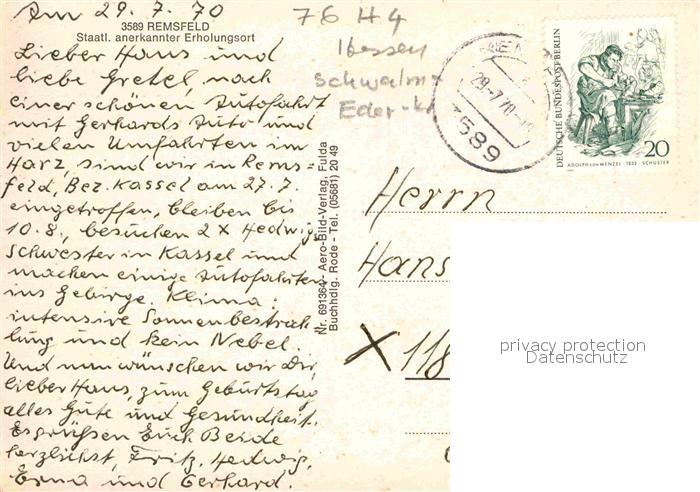 Am 29. 7. 70
3589 REMSFELD
Staatl. anerkannter Erholungsort
Lieber Hans und
liebe Gretel, nach
einer schönen Autofahrt
mit Gerhards Auto und
vielen Umfahrten im
Harz, sind wir in Rems-
feld, Bez. Kassel am 27.7.
eingetroffen, bleiben bis
10.8., besuchen 2 x Hedwigs
Schwester in Kassel und
machen einige Autofahrten
ins Gebirge. Klima:
intensive Sonnenbestrah-
lung und kein Nebel.
Und nun wünschen wir Dir,
lieber Hans, zum Geburtstag
alles Gute und Gesundheit.
Es grüßen Euch Beide
herzlichst Fritz, Hedwig,
Erna und Gerhard.
76 H 4
Hessen
Schwalm-
Eder-Kr
Nr. 691364 - Aero-Bild-Verlag, Fulda
Buchhdlg. Rode - Tel. (05681) 20 49
29.-7.70
3589
DEUTSCHE BUNDESPOST BERLIN
20
ADOLPH VON MENZEL · 1833 · SCHUSTER
Herrn
Hans
X 118
privacy protection
Datenschutz